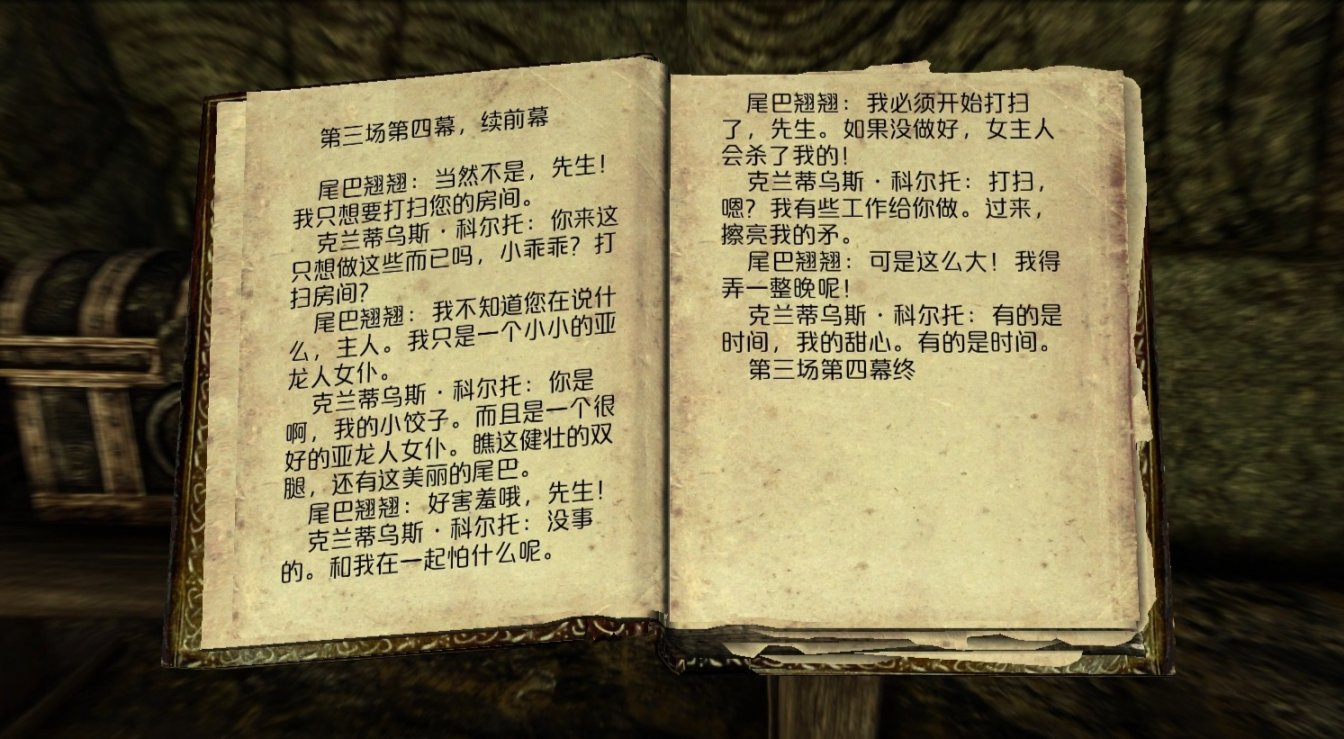 第三场第四幕，续前幕
尾巴翘翘：当然不是，先生！
我只想要打扫您的房间。
克兰蒂乌斯·科尔托：你来这
只想做这些而已吗，小乖乖？打
扫房间？
尾巴翘翘：我不知道您在说什
么，主人。我只是一个小小的亚
龙人女仆。
克兰蒂乌斯·科尔托：你是
啊，我的小饺子。而且是一个很
好的亚龙人女仆。瞧这健壮的双
腿，还有这美丽的尾巴。
尾巴翘翘：好害羞哦，先生！
克兰蒂乌斯·科尔托：没事
的。和我在一起怕什么呢。
尾巴翘翘：我必须开始打扫
了，先生。如果没做好，女主人
会杀了我的！
克兰蒂乌斯·科尔托：打扫，
嗯？我有些工作给你做。过来，
擦亮我的矛。
尾巴翘翘：可是这么大！我得
弄一整晚呢！
克兰蒂乌斯·科尔托：有的是
时间，我的甜心。有的是时间。
第三场第四幕终